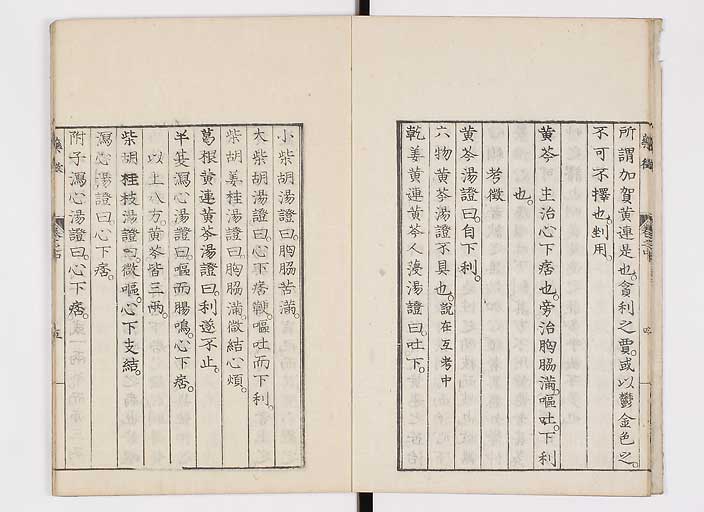 所謂加賀黄連是也。貪利之賈。或以鬱金色之。
不可不擇也。剉用。
黄芩 主治心下痞也。旁治胸脇滿。嘔吐。下利
也。
考徵
黄芩湯證曰。自下利。
六物黄芩湯證不具也。說在互考中
乾姜黄連黄芩人薓湯證曰。吐下。
藥徵
小柴胡湯證曰。胸脇苦滿。
大柴胡湯證曰。心下痞鞕。嘔吐而下利。
柴胡姜桂湯證曰。胸脇滿。微結。心煩。
葛根黄連黄芩湯證曰。利遂不止。
半薓瀉心湯證曰。嘔而腸鳴。心下痞。
以上八方。黄芩皆三兩。
柴胡桂枝湯證曰。微嘔。心下支結。
瀉心湯證曰。心下痞。
附子瀉心湯證曰。心下痞。
藥徵